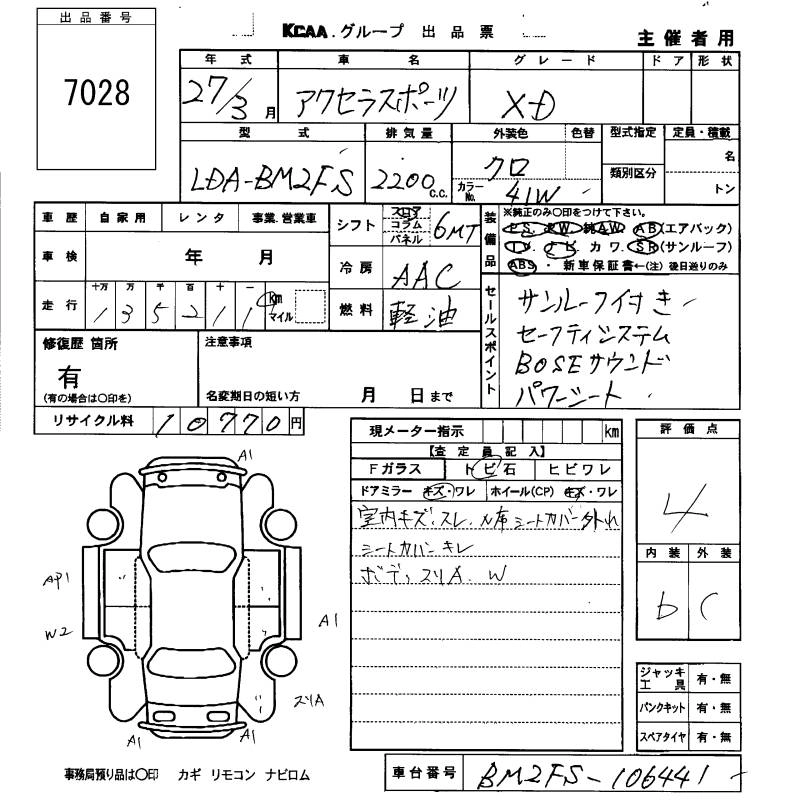 出品番号
7028
KCAA.グループ 出品票
主催者用
年式 車名 グレード ドア 形状
27/3月 アクセラスポーツ XD
型式 排気量 外装色 色替 型式指定 定員・積載
LDA-BM2FS 2200c.c. クロ 名
カラーNo. 41W 類別区分 トン
車歴 自家用 レンタ 事業.営業車
車検 年 月
走行 十万 万 千 百 十 一
1 3 5 2 1 1 km マイル
シフト フロア コラム パネル 6MT
冷房 AAC
燃料 軽油
装備品
※純正のみ○印をつけて下さい。
PS. PW. 純AW. AB(エアバック)
TV. ナビ. カワ. SR(サンルーフ)
ABS ・ 新車保証書←(注) 後日送りのみ
セールスポイント
サンルーフ付き
セーフティシステム
BOSEサウンド
パワーシート
修復歴 箇所
有
(有の場合は○印を)
注意事項
名変期日の短い方 月 日まで
リサイクル料 10770円
現メーター指示 km
【査定員記入】
Fガラス トビ石 ヒビワレ
ドアミラー キズ・ワレ ホイール(CP) キズ・ワレ
室内キズ.スレ. シートカバー外れ
シートカバーキレ
ボディスリA. W
評価点
4
内装 外装
b C
ジャッキ 工具 有・無
パンクキット 有・無
スペアタイヤ 有・無
A1
AP1
W2
A1
スリA
A1
A1
事務局預り品は○印 カギ リモコン ナビロム
車台番号 BM2FS-106441